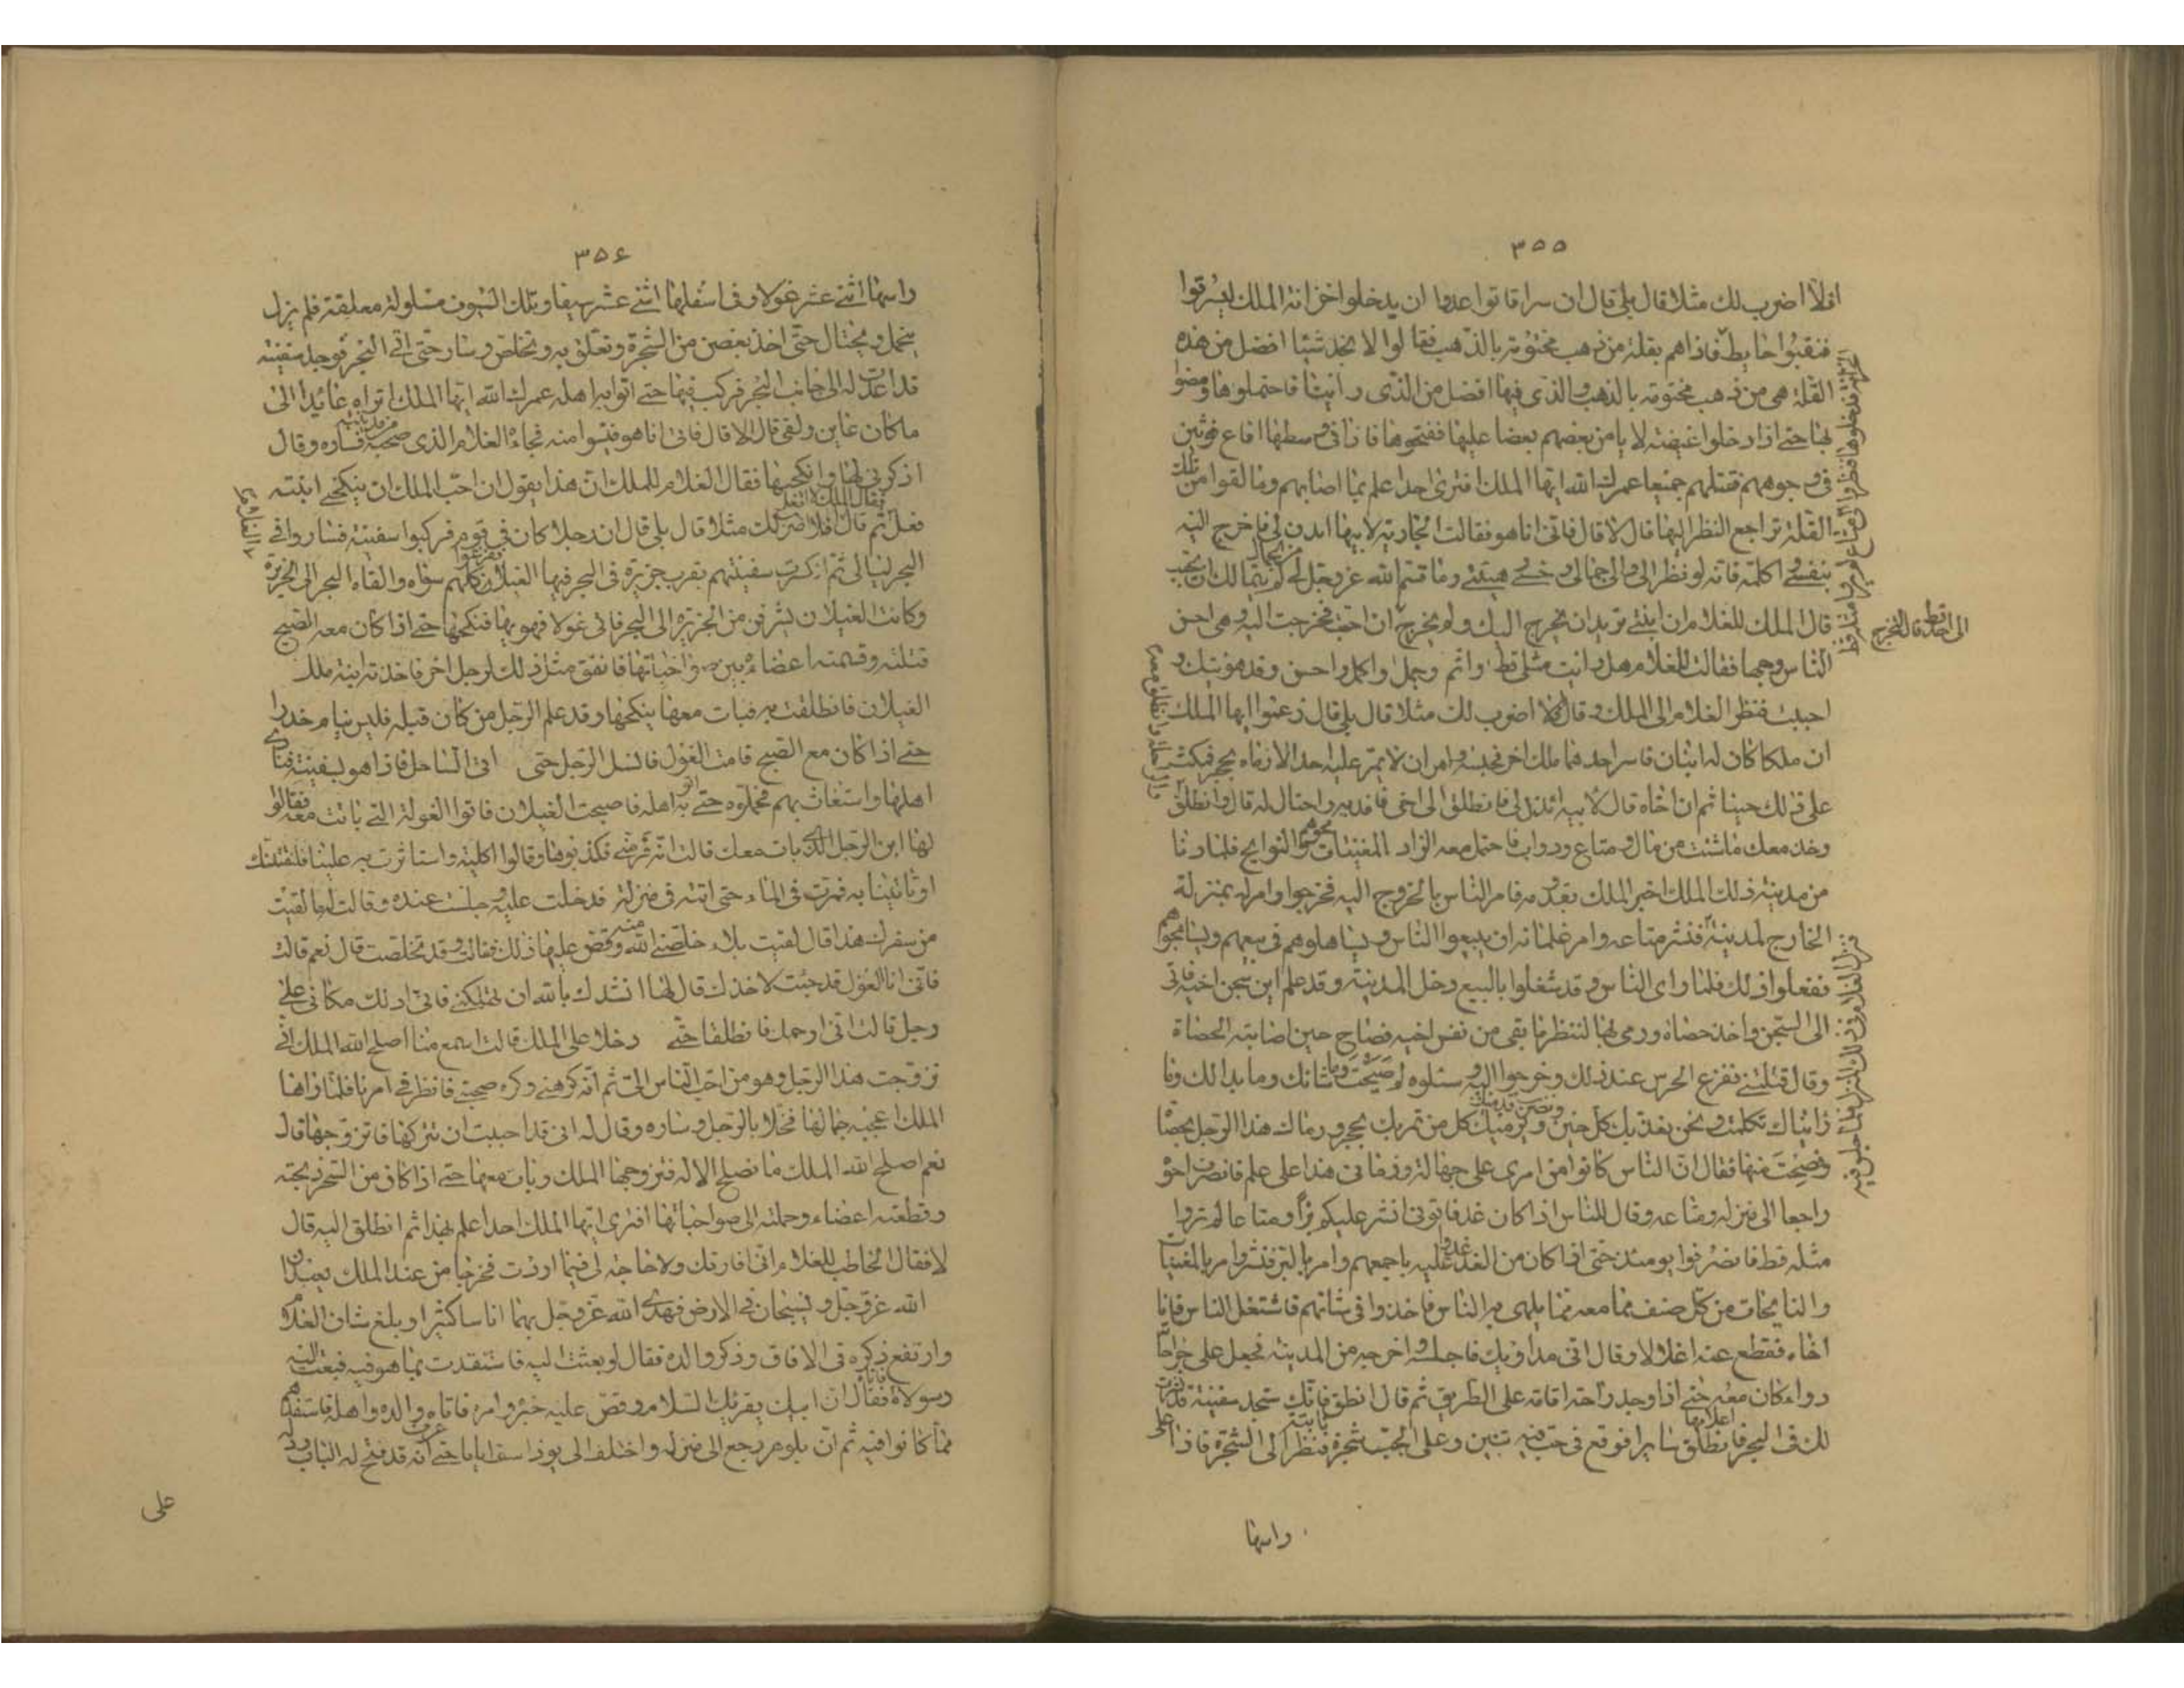 ٣٥٥
افلا اضرب لك مثلا قال بلى قال ان سراقا تواعدوا ان يدخلوا خزانة الملك ليسرقوا
فنقبوا حايط فاذا هم بقلة من ذهب مختومة بالذهب فقالوا لا نجد شيئا افضل من هذه
القلة هى من ذهب مختومة بالذهب والذى فيها افضل من الذى راينا فاحتملوها ومضوا
بها حتى اذا دخلوا غيضة لا يامن بعضهم بعضا عليها ففتحوها فاذا فى وسطها افاع فوثبن
فى وجوههم فقتلهم جميعا عمرك الله ايها الملك افترى احدا علم بما اصابهم وما لقوا من تلك
القلة تراجع النظر اليها قال لا قال فانى انا هو فقالت الجارية لابيها ايذن لى فاخرج اليه
بنفسى اكلمه فانه لو نظر الى والى جمالى وحسن هيئتى وما قسم الله عز وجل لى من الجمال لم يتمالك ان يجيب
قال الملك للغلام ان ابنتى تريد ان تخرج اليك ولم يخرج
الى احد قط قال لتخرج
ان احبت فخرجت اليه وهى احسن
الناس وجها فقالت للغلام هل رايت مثلى قط واتم وجمل واكمل واحسن وقد هويتك و
احببت فنظر الغلام الى الملك وقال افلا اضرب لك مثلا قال بلى قال زعموا ايها الملك
ان ملكا كان له ابنان فاسر احدهما ملك اخر فحبسه وامر ان لا يمر عليه احد الا رماه بحجر فمكث
على ذلك حينا ثم ان اخاه قال لابيه ائذن لى فانطلق الى اخى فافديه واحتال له قال وانطلق
وخذ معك ما شئت من مال ومتاع ودواب فاحتمل معه الزاد المغنيات والنوايح فلما دنا
من مدينة ذلك الملك اخبر الملك بقدومه فامر الناس بالخروج اليه فخرجوا وامر له بمنزلة
الخارج لمدينة فنشر متاعه وامر غلمانه ان يبيعوا الناس ويساهلوهم فى بيعهم ويسامحوهم
ففعلوا ذلك فلما راى الناس قد شغلوا بالبيع دخل المدينة وقد علم اين سجن اخيه فاتى
الى السجن واخذ حصاة ورمى بها لننظر ما بقى من نفس اخيه فصاح حين اصابته الحصاة
وقال قتلتنى ففزع الحرس عند ذلك وخرجوا اليه وسئلوه لم صحت وما شانك وما بدا لك وما
رايناك تكلمت ونحن نعذبك كل حين ويرميك كل من تمر بك بحجر ورماك هذا الرجل بحصاة
فصحت منها فقال ان الناس كانوا من امرى على جهالة ورمانى هذا على علم فانصرف اخوه
راجعا الى منزله ومتاعه وقال للناس اذا كان غد فاتونى انشر عليكم بزا ومتاعا لم تروا
مثله قط فانصرفوا يومئذ حتى اذا كان من الغد غدوا عليه باجمعهم وامر بالبز فنشر وامر بالمغنيات
والنايحات من كل صنف مما معه مما يلهى به الناس فاخذوا فى شانهم فاشتغل الناس فاتا
اخاه فقطع عنه اغلالا وقال انى مداويك فاجلسه واخرجه من المدينة فجعل على جراحاته
دواء كان معه حتى اذا وجد راحة اقامه على الطريق ثم قال انطلق فانك ستجد سفينة
لك فى البحر فانطلق سايرا فوقع فى جب فيه تنين وعلى الجب شجرة فنظر الى الشجرة فاذا على
راسها
٣٥۶
راسها اثنى عشر غولا وفى اسفلها اثنى عشر سيفا وتلك السيوف مسلولة معلقة فلم يزل
يتحمل ويحتال حتى اخذ بغصن من الشجرة وتعلق به وتخلص وسار حتى اتى البحر فوجد سفينة
قد اعدت له الى جانب البحر فركب فيها حتى اتوا به اهله عمرك الله ايها الملك اتراه عائدا الى
ما كان عاين ولقى قال لا قال فانى انا هو فيئسوا منه فجاء الغلام الذى صحبه من مدينته فساره وقال
اذكرنى لها وانكحنيها فقال الغلام للملك ان هذا يقول ان احب الملك ان ينكحنى ابنته
فعل ثم قال افلا اضرب لك مثلا قال بلى قال ان رجلا كان فى قوم فركبوا سفينة فساروا فى
البحر ليالى ثم انكسرت سفينتهم بقرب جزيرة فى البحر فيها الغيلان فغرقوا كلهم سواه والقاه البحر الى الجزيرة
وكانت الغيلان يشرفن من الجزيرة الى البحر فاتى غولا فهويها فنكحها حتى اذا كان مع الصبح
قتلته وقسمت اعضاءه بين صواحباتها فاتفق مثل ذلك لرجل اخر فاخذته ابنة ملك
الغيلان فانطلقت به فبات معها ينكحها وقد علم الرجل من كان قبله فليس ينام حذرا
حتى اذا كان مع الصبح قامت الغول فانسل الرجل حتى اتى الساحل فاذا هو بسفينة فنادى
اهلها واستغاث بهم فحملوه حتى اتوا به اهله فاصبحت الغيلان فاتوا الغولة التى باتت معه فقالوا
لها اين الرجل الذى بات معك قالت انه فر منى فكذبوها وقالوا اكلته واستاثرت به علينا فلنقتلنك
او تاتينا به فمرت فى الماء حتى اتته فى منزله فدخلت عليه وجلست عنده وقالت له ما لقيت
من سفرك هذا قال لقيت بلاء خلصنى الله منه وقص عليها ذلك فقالت وقد تخلصت قال نعم قالت
فانى انا الغول قد جئت لاخذك قال لها انشدك بالله ان تهلكنى فانى ادلك مكانى على
رجل قالت انى ارحمك فانطلقا حتى دخلا على الملك قالت اسمع منا اصلح الله الملك انى
تزوجت هذا الرجل وهو من احب الناس الى ثم انه كرهنى وكره صحبتى فانظر فى امرنا فلما راها
الملك اعجبه جمالها فخلا بالرجل وساره وقال له انى قد احببت ان تتركها فاتزوجها قال
نعم اصلح الله الملك ما تصلح الا له فتزوجها الملك وبات معها حتى اذا كان من السحر ذبحته
وقطعت اعضاءه وحملته الى صواحباتها افترى ايها الملك احدا علم بهذا ثم انطلق اليه قال
لا فقال الخاطب للغلام انى لا افارقك ولا حاجة لى فيما اردت فخرجا من عند الملك يعبدان
الله عز وجل ويسيحان فى الارض فهدى الله عز وجل بهما اناسا كثيرا وبلغ شان الغلام
وارتفع ذكره فى الافاق وذكر والده فقال لو بعثت اليه فاستنقذت مما هو فيه فبعث اليه
رسولا فاتاه فقال ان ابيك يقرئك السلام وقص عليه خبره وامره فاتاه والده واهله فاستنقذهم
مما كانوا فيه ثم ان بلوهر رجع الى منزله واختلف الى يوذاسف اياما حتى عرف انه قد فتح له الباب
على